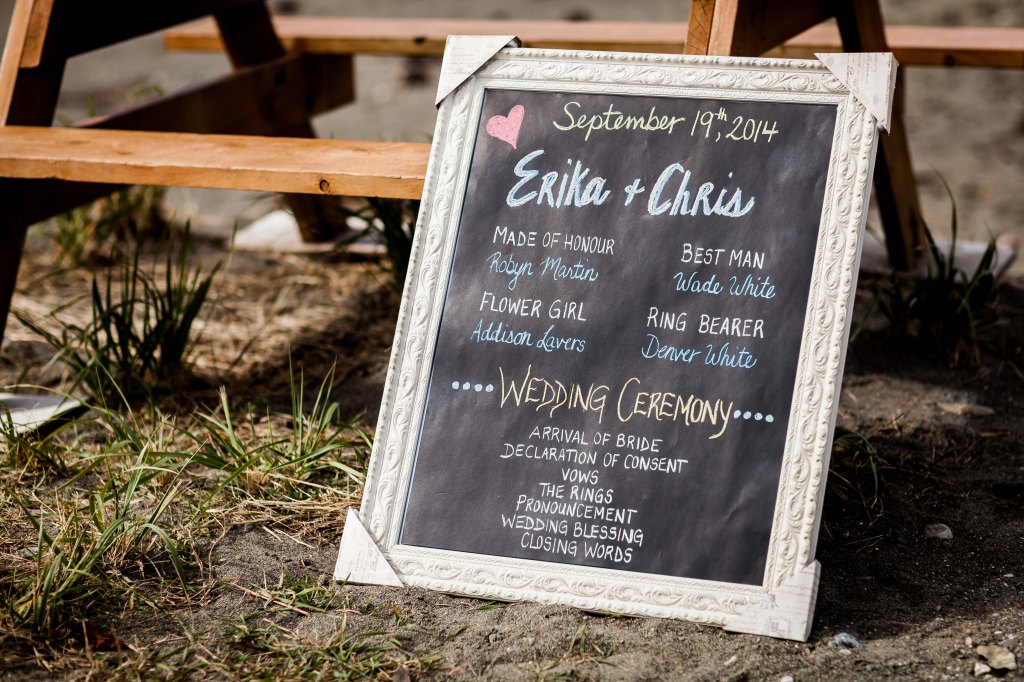 September 19th, 2014
Erika + Chris
MADE OF HONOUR
Robyn Martin
BEST MAN
Wade White
FLOWER GIRL
Addison Lavers
RING BEARER
Denver White
WEDDING CEREMONY
ARRIVAL OF BRIDE
DECLARATION OF CONSENT
VOWS
THE RINGS
PRONOUNCEMENT
WEDDING BLESSING
CLOSING WORDS